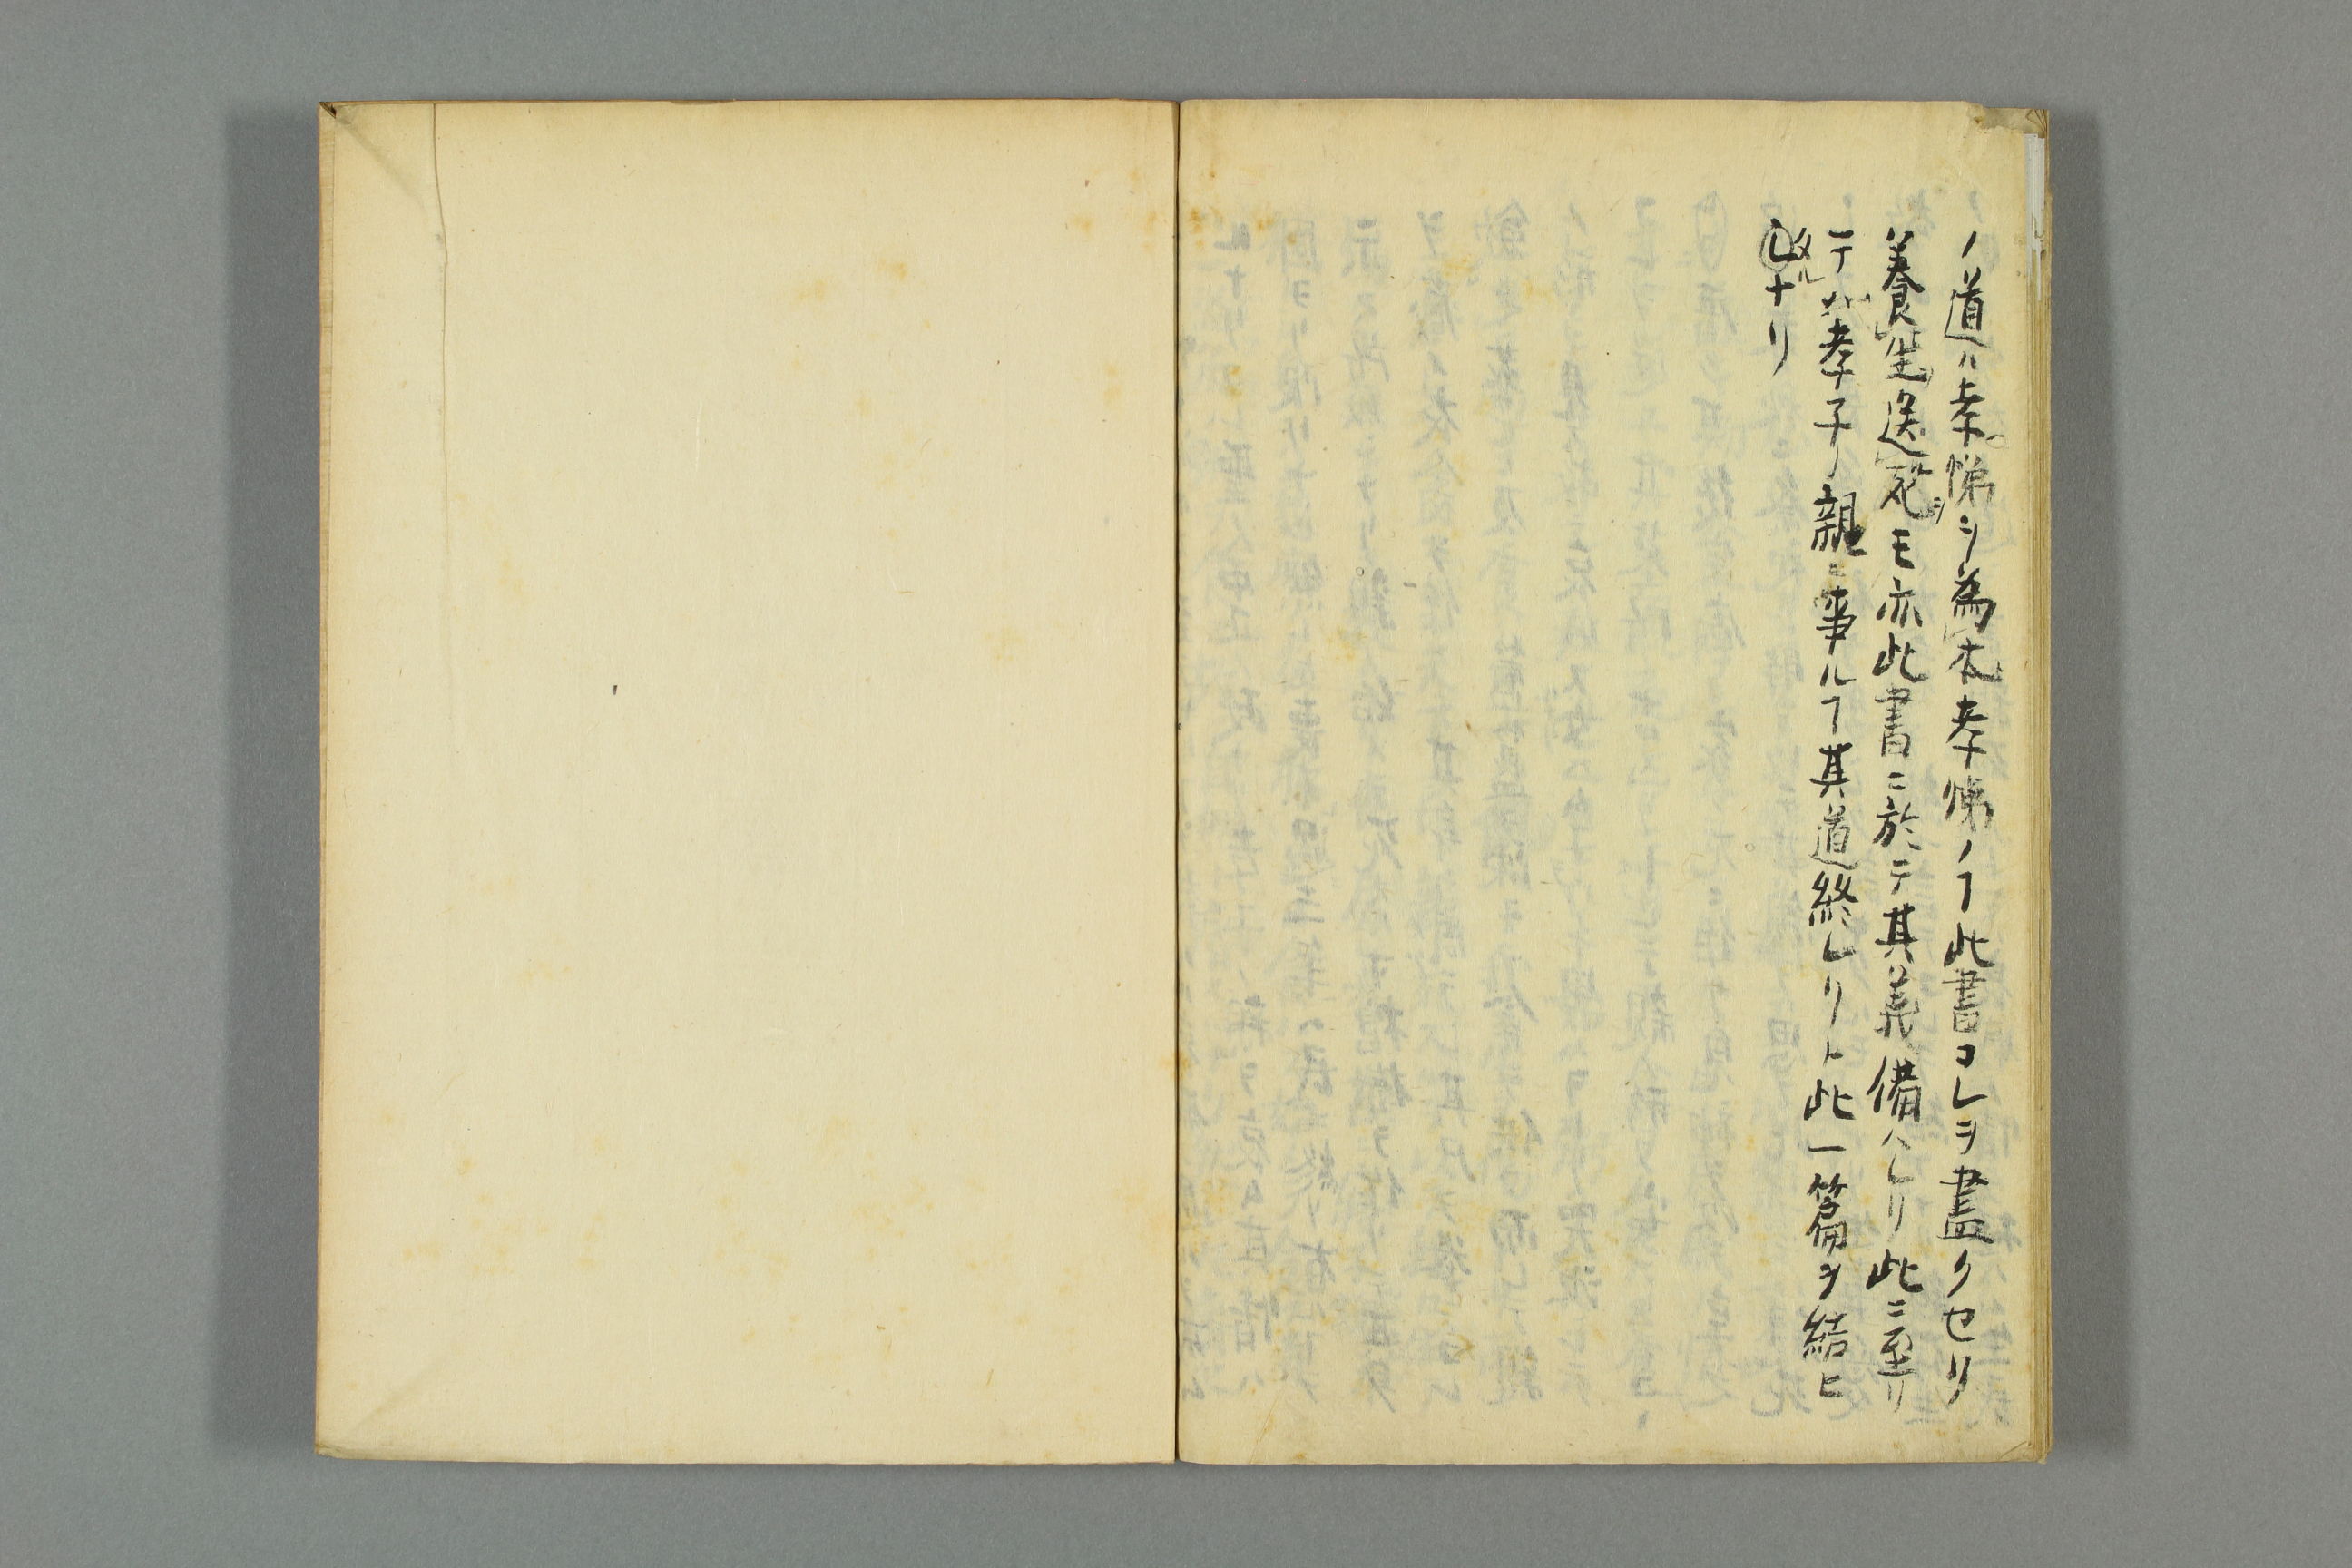 ノ道ハ孝悌ヲ為本孝悌ノヿ此書コレヲ盡クセリ
養生送死モ亦此書ニ於テ其義備ハレリ此ニ至リ
テハ孝子ノ親ニ事ルヿ其道終レリト此一篇ヲ結ヒ
タルナリ